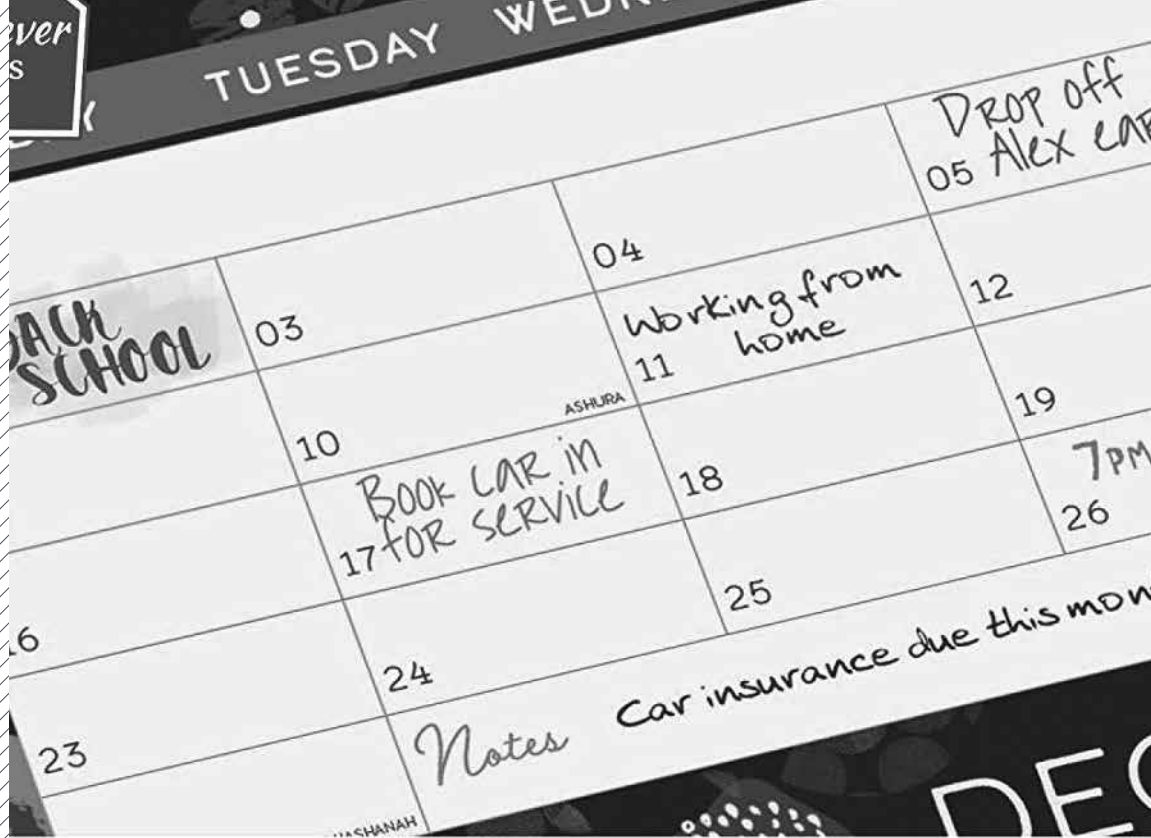 ever
s
TUESDAY
Drop off
05 Alex
04
BACK
SCHOOL
03
Working from
home
11
12
10
ASHURA
19
Book car in
for service
17
18
7PM
26
16
25
24
Car insurance due this
Notes
23
HASHANAH